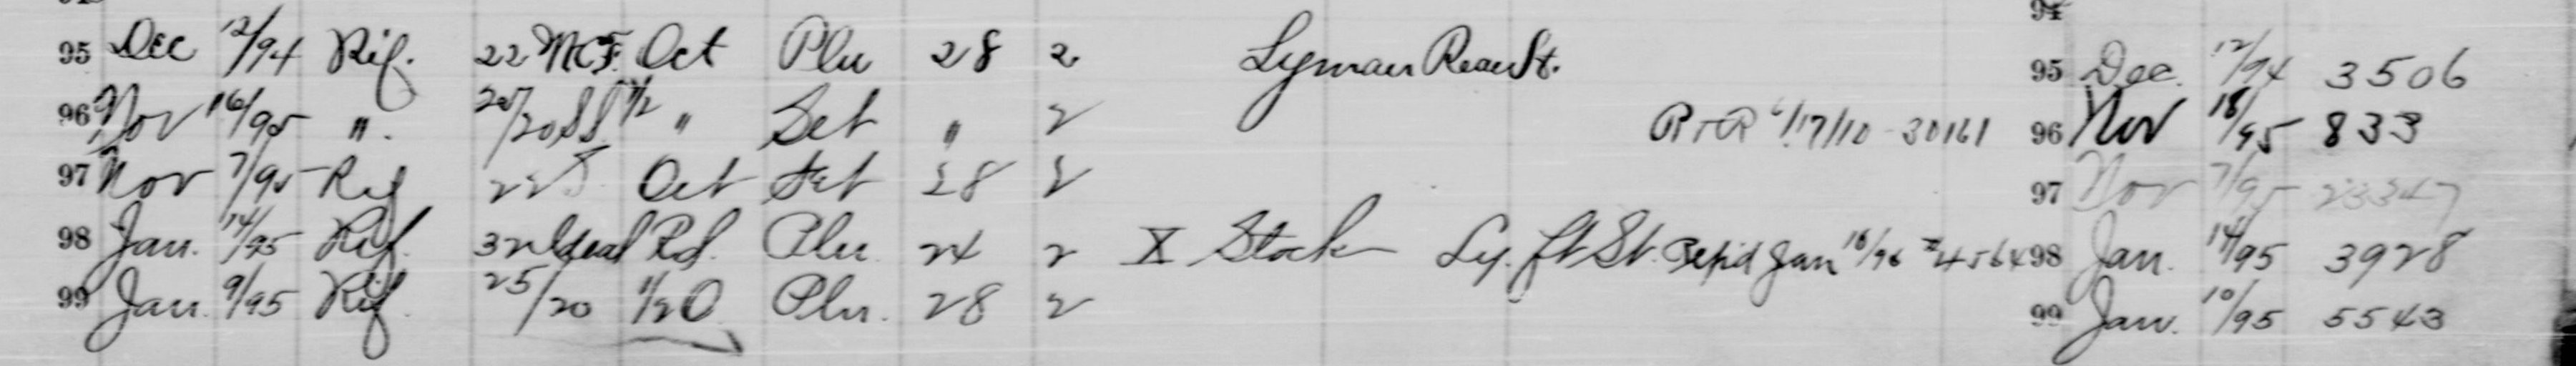 95 Dec 12/94 Rif. 22 MCF. Oct Plu 28 2 Lyman Rear St. 95 Dec. 12/94 3506
96 Nov 16/95 ". 25/20 SS 1/2 " Set " 2 R&R 6/17/10-30161 96 Nov 18/95 833
97 Nov 7/95 Rif 22 S Oct Set 28 2 97 Nov 7/95 23347
98 Jan. 14/95 Rif. 32 Ideal Rd. Plu. 24 2 X Stock Ly. ft St. Rep'd Jan 16/96 #4564 98 Jan. 14/95 3928
99 Jan. 9/95 Rif. 25/20 1/2 O Plu. 28 2 99 Jan. 10/95 5543